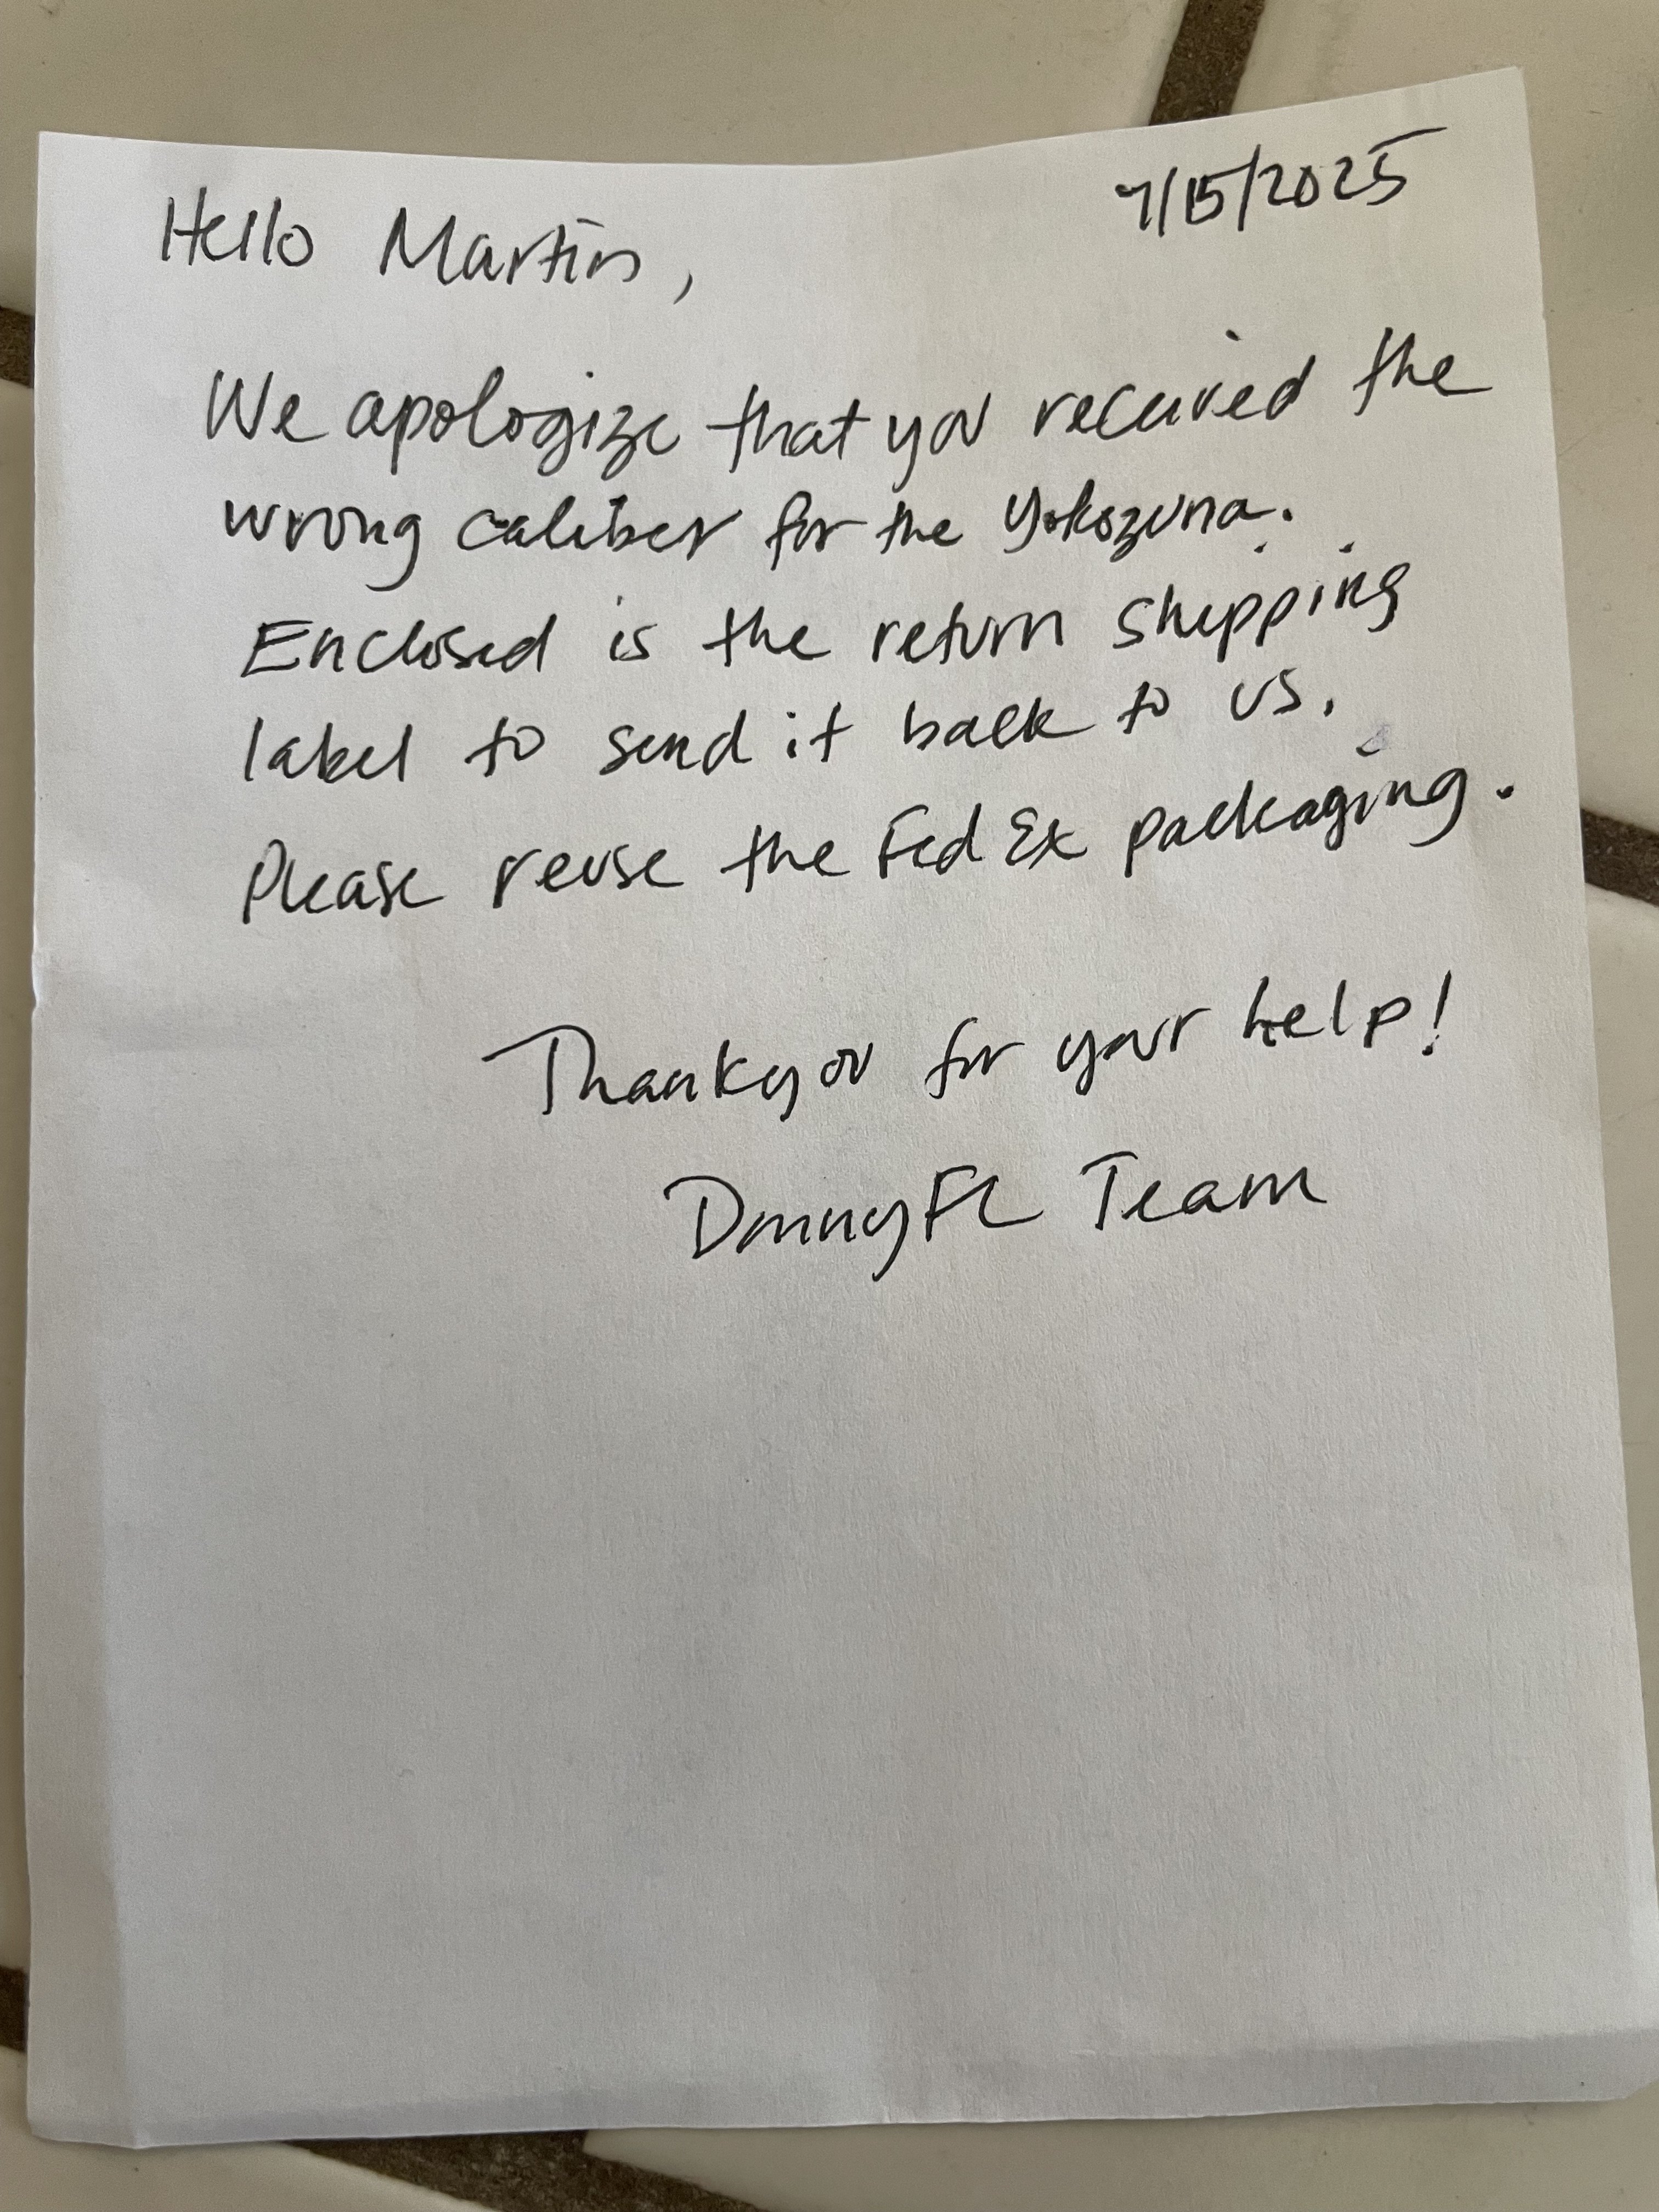 7/15/2025
Hello Martin,
We apologize that you received the
wrong caliber for the Yokozuna.
Enclosed is the return shipping
label to send it back to us.
Please reuse the FedEx packaging.
Thank you for your help!
DonnyFL Team